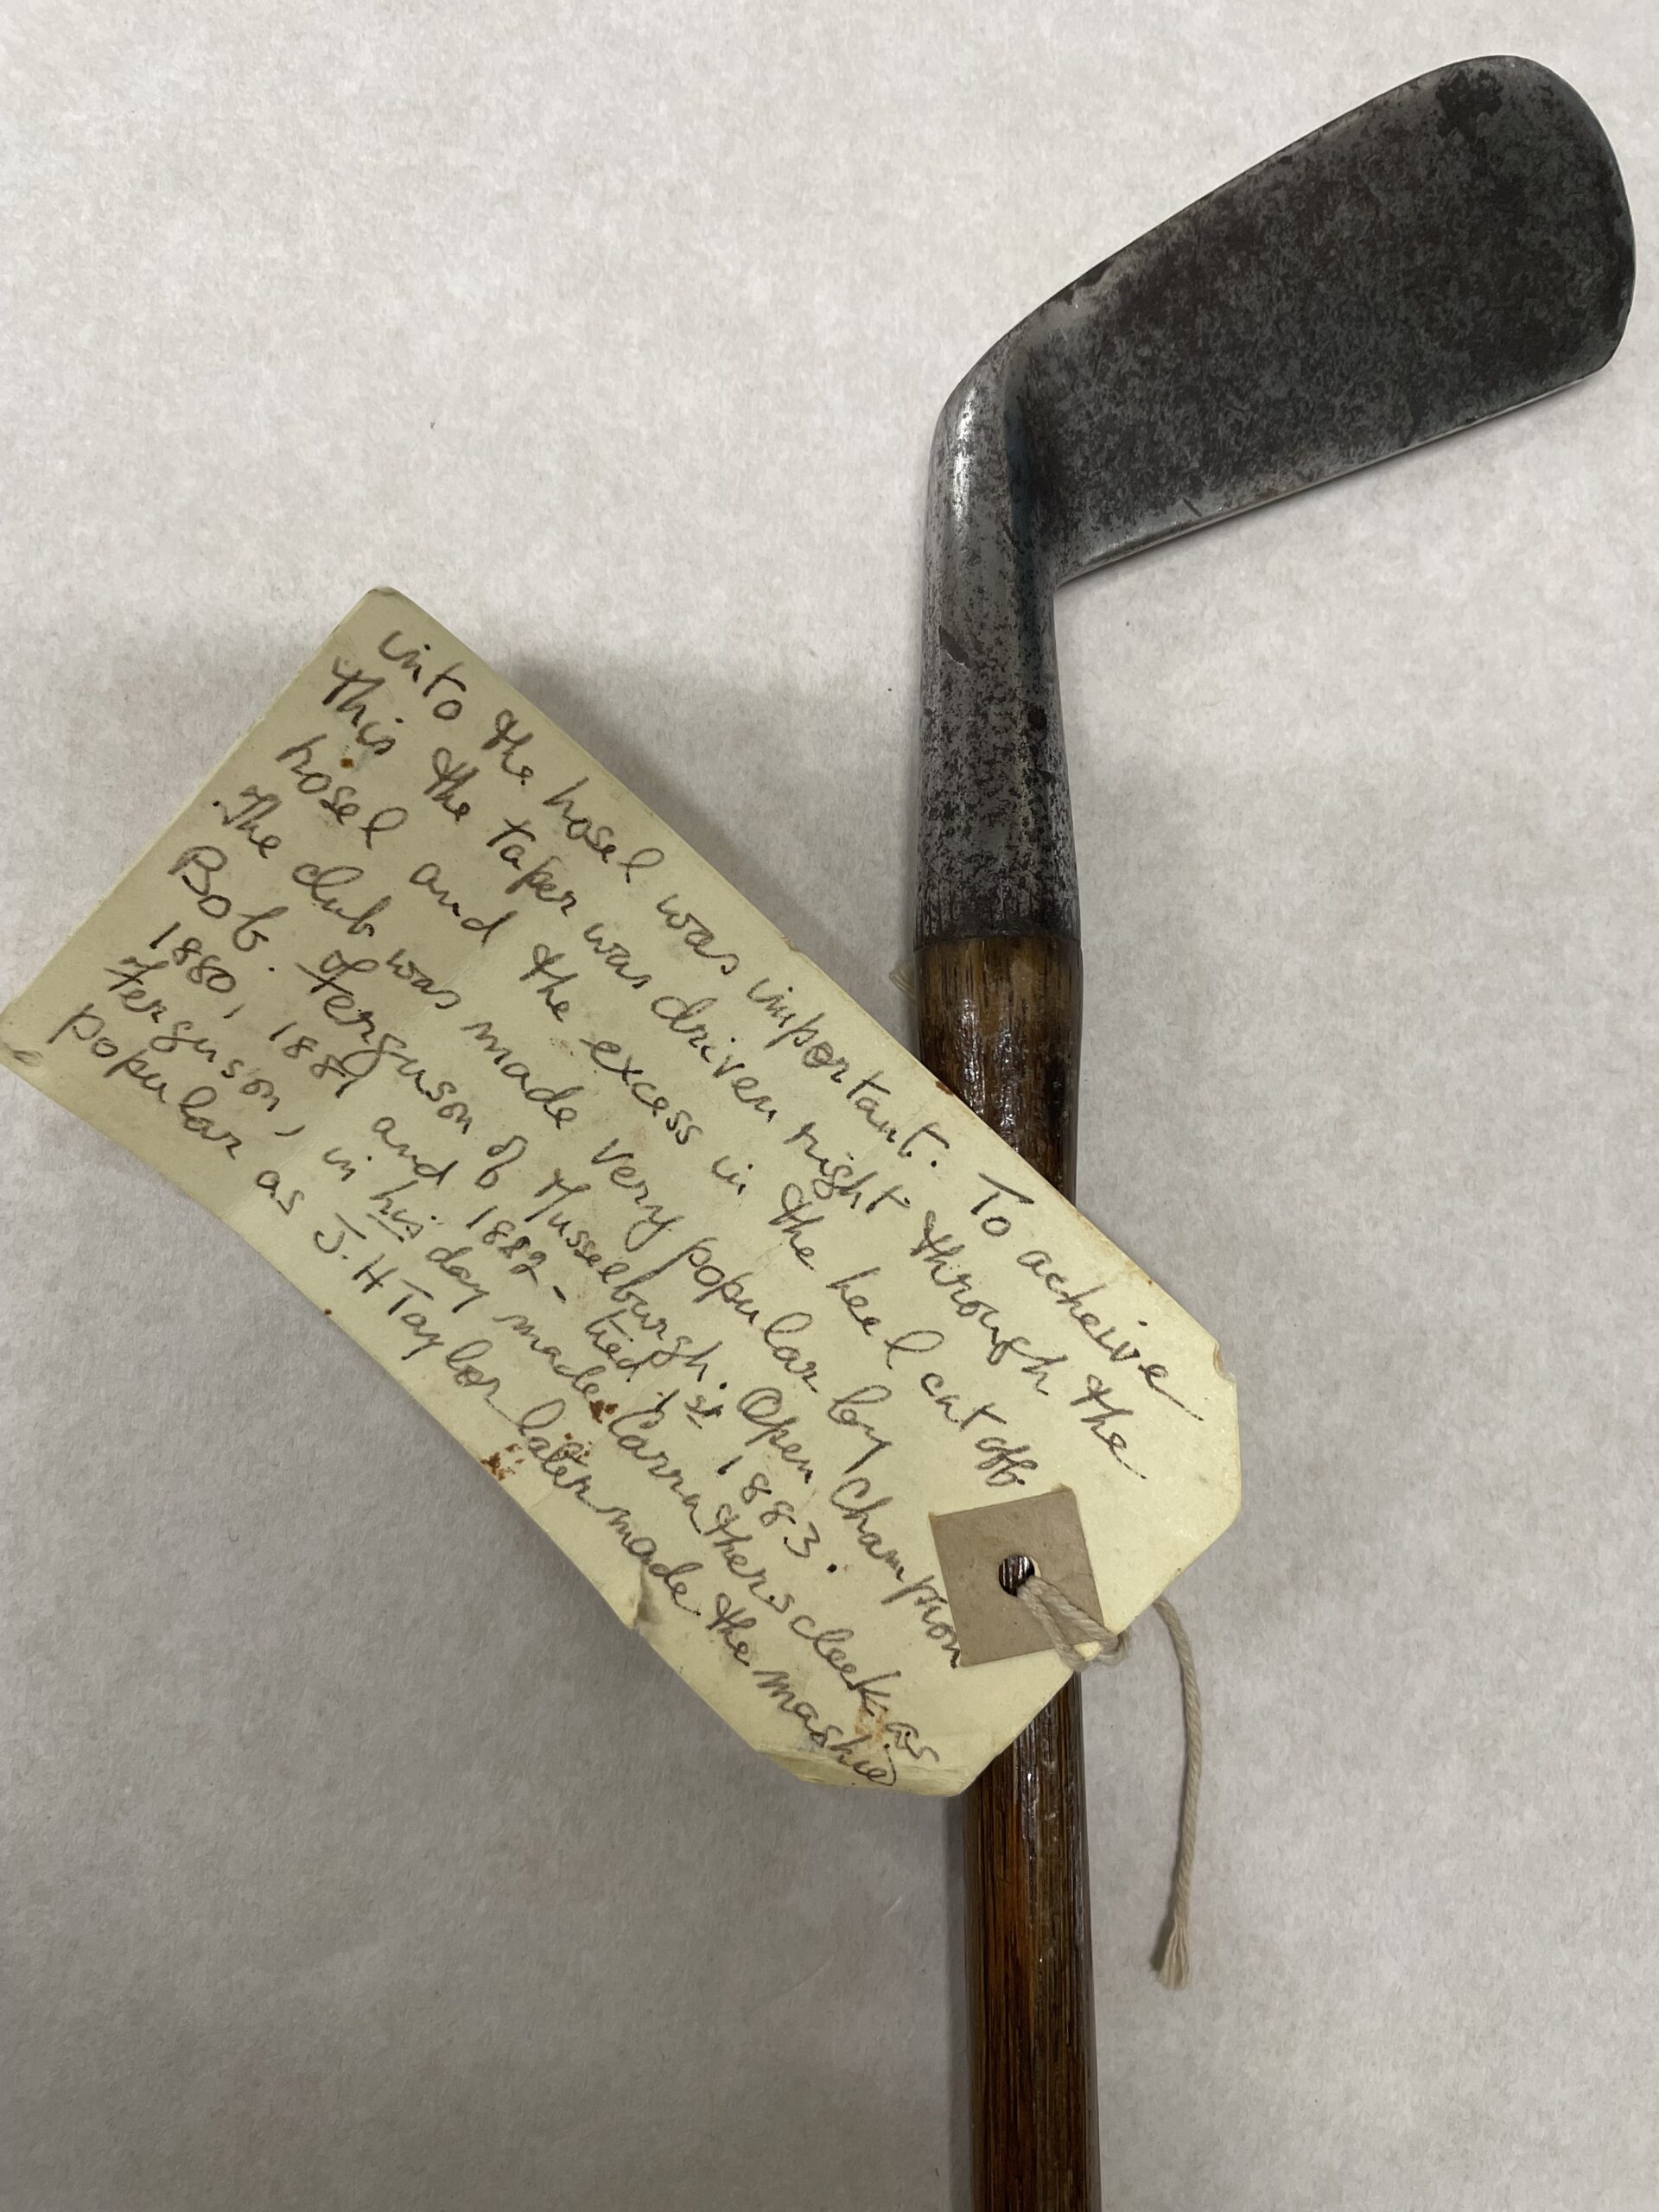 into the hosel was important. To acheive
this the taper was driven right through the
hosel and the excess in the heel cut off.
The club was made very popular by Champion
Bob. Ferguson of Musselburgh. Open
1880, 1881 and 1882 - tied 1st 1883.
Ferguson, in his day made Carruthers cleek as
popular as J. H Taylor later made the mashie